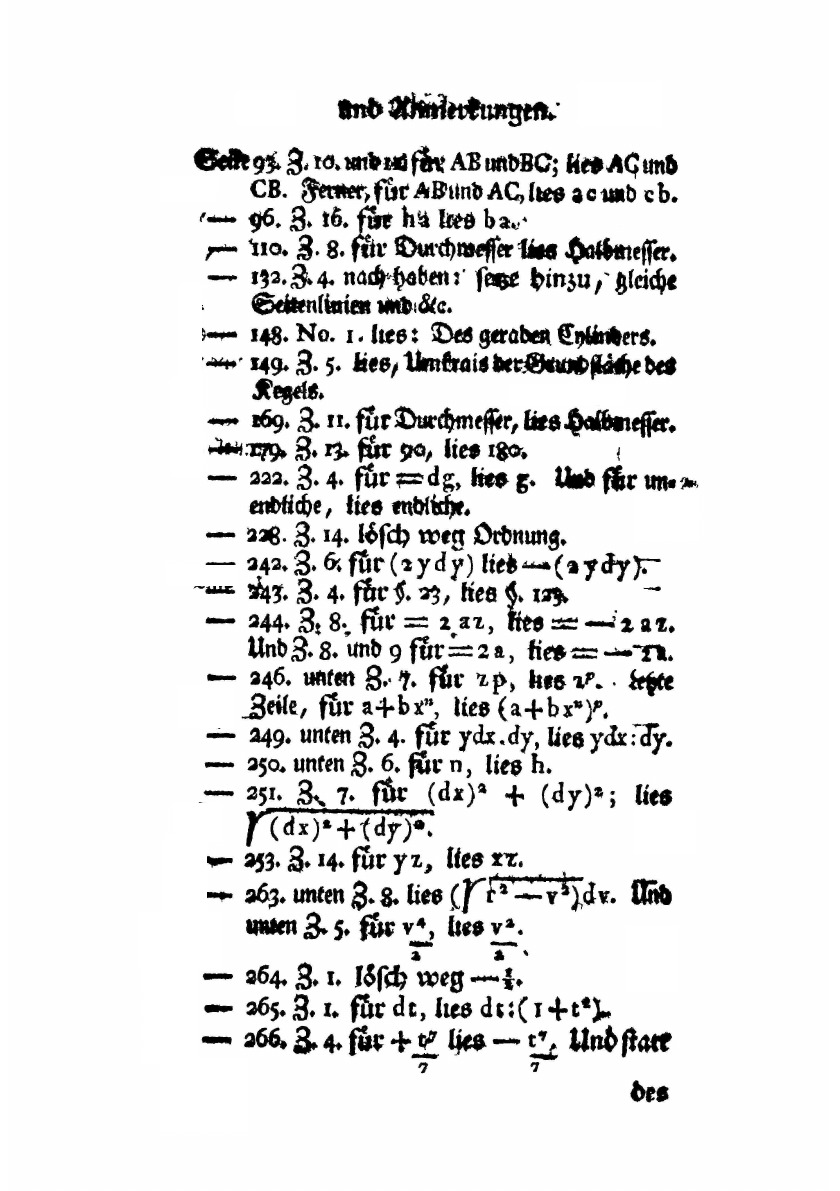 und Anmerkungen.
Seite 93. Z. 10. und für AB und BC; lies AC und
CB. Ferner, für AB und AC, lies ac und cb.
— 96. Z. 16. für lies ba.
— 110. Z. 8. für Durchmesser lies Halbmesser.
— 132. Z. 4. nach haben: setze hinzu, gleiche
Seitenlinien und &c.
— 148. No. 1. lies: Des geraden Cylinders.
— 149. Z. 5. lies, Umkrais der Grundfläche des
Kegels.
— 169. Z. 11. für Durchmesser, lies Halbmesser.
— 179. Z. 13. für 90, lies 180.
— 222. Z. 4. für = dg, lies g. Und für un-
endliche, lies endliche.
— 228. Z. 14. lösch weg Ordnung.
— 242. Z. 6. für (2ydy) lies — (2ydy).
— 243. Z. 4. für §. 23, lies §. 123.
— 244. Z. 8. für = 2az, lies = — 2az.
Und Z. 8. und 9 für = 2a, lies = — 2a.
— 246. unten Z. 7. für zp, lies zᵖ. letzte
Zeile, für a+bxⁿ, lies (a+bxⁿ)ᵖ.
— 249. unten Z. 4. für ydx.dy, lies ydx:dy.
— 250. unten Z. 6. für n, lies h.
— 251. Z. 7. für (dx)² + (dy)²; lies
√(dx)²+(dy)².
— 253. Z. 14. für yz, lies xz.
— 263. unten Z. 8. lies (√r²—v²)dv. Und
unten Z. 5. für v⁴/2, lies v²/2.
— 264. Z. 1. lösch weg —½.
— 265. Z. 1. für dt, lies dt:(1+t²).
— 266. Z. 4. für + t⁷/7 lies — t⁷/7. Und statt
des